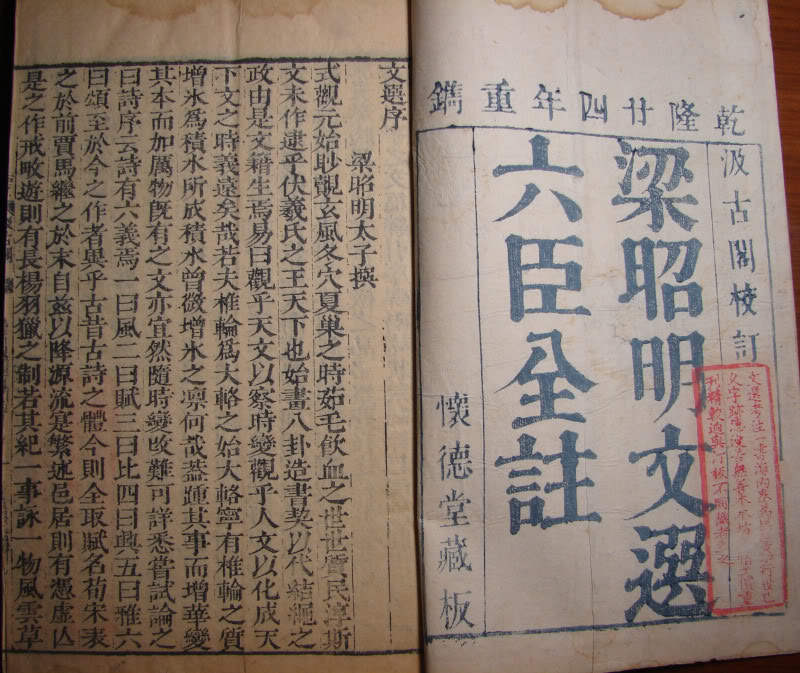 乾隆廿四年重鐫
汲古閣校訂
梁昭明文選
六臣全註
懷德堂藏板
文選序
梁昭明太子撰
式觀元始眇覿玄風冬穴夏巢之時茹毛飲血之世世質民淳斯
文未作逮乎伏羲氏之王天下也始畫八卦造書契以代結繩之
政由是文籍生焉易曰觀乎天文以察時變觀乎人文以化成天
下文之時義遠矣哉若夫椎輪爲大輅之始大輅寧有椎輪之質
增氷爲積水所成積水曾微增氷之凛何哉蓋踵其事而增華變
其本而加厲物既有之文亦宜然隨時變改難可詳悉嘗試論之
曰詩序云詩有六義焉一曰風二曰賦三曰比四曰興五曰雅六
曰頌至於今之作者異乎古昔古詩之體今則全取賦名荀宋表
之於前賈馬繼之於末自兹以降源流寔繁述邑居則有憑虛亾
是之作戒畋遊則有長楊羽獵之制若其紀一事詠一物風雲草